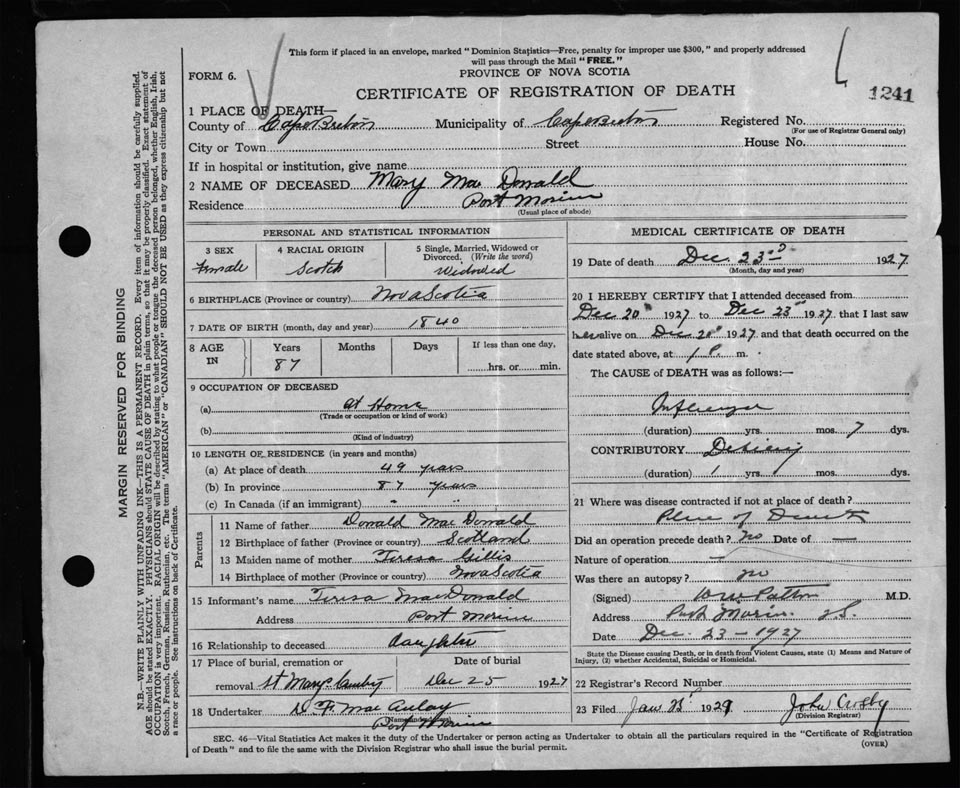 This form if placed in an envelope, marked "Dominion Statistics—Free, penalty for improper use $300," and properly addressed
will pass through the Mail "FREE."
FORM 6.
PROVINCE OF NOVA SCOTIA
CERTIFICATE OF REGISTRATION OF DEATH
1241
1 PLACE OF DEATH—
County of Cape Breton Municipality of Cape Breton Registered No.
(For use of Registrar General only)
City or Town Street House No.
If in hospital or institution, give name
2 NAME OF DECEASED Mary Mac Donald
Residence Port Morien
(Usual place of abode)
PERSONAL AND STATISTICAL INFORMATION
3 SEX
Female
4 RACIAL ORIGIN
Scotch
5 Single, Married, Widowed or
Divorced. (Write the word)
Widowed
6 BIRTHPLACE (Province or country) Nova Scotia
7 DATE OF BIRTH (month, day and year) 1840
8 AGE IN
Years Months Days If less than one day,
87 hrs. or min.
9 OCCUPATION OF DECEASED
(a) At Home
(Trade or occupation or kind of work)
(b)
(Kind of industry)
10 LENGTH OF RESIDENCE (in years and months)
(a) At place of death 49 years
(b) In province 87 years
(c) In Canada (if an immigrant) " "
Parents
11 Name of father Donald Mac Donald
12 Birthplace of father (Province or country) Scotland
13 Maiden name of mother Teresa Gillis
14 Birthplace of mother (Province or country) Nova Scotia
15 Informant's name Teresa MacDonald
Address Port Morien
16 Relationship to deceased daughter
17 Place of burial, cremation or Date of burial
removal St Marys Dec 25 1927
18 Undertaker D. F. Mac Aulay
Port Morien
MEDICAL CERTIFICATE OF DEATH
19 Date of death Dec. 23rd 1927
(Month, day and year)
20 I HEREBY CERTIFY that I attended deceased from
Dec 20 1927 to Dec 23 1927 that I last saw
her alive on Dec 20 1927 and that death occurred on the
date stated above, at 1 P. m.
The CAUSE of DEATH was as follows:—
Influenza
(duration) yrs. mos. 7 dys.
CONTRIBUTORY
(duration) 1 yrs. mos. dys.
21 Where was disease contracted if not at place of death?
Place of Death
Did an operation precede death? no Date of —
Nature of operation —
Was there an autopsy? no
(Signed) Patton M.D.
Address Port Morien N.S.
Date Dec. 23 - 1927
State the Disease causing Death, or in death from Violent Causes, state (1) Means and Nature of
Injury, (2) whether Accidental, Suicidal or Homicidal.
22 Registrar's Record Number
23 Filed Jan 192 John Crosby
(Division Registrar)
SEC. 46—Vital Statistics Act makes it the duty of the Undertaker or person acting as Undertaker to obtain all the particulars required in the "Certificate of Registration
of Death" and to file the same with the Division Registrar who shall issue the burial permit.
(OVER)
MARGIN RESERVED FOR BINDING
N.B.—WRITE PLAINLY WITH UNFADING INK—THIS IS A PERMANENT RECORD. Every item of information should be carefully supplied.
AGE should be stated EXACTLY. PHYSICIANS should STATE CAUSE OF DEATH in plain terms, so that it may be properly classified. Exact statement of
OCCUPATION is very important. RACIAL ORIGIN will be described by stating to what people or tongue the deceased person belonged, whether English, Irish,
Scotch, French, German, Russian, Ruthenian, etc. The terms "AMERICAN" or "CANADIAN" SHOULD NOT BE USED as they express citizenship but not
a race or people. See instructions on back of Certificate.